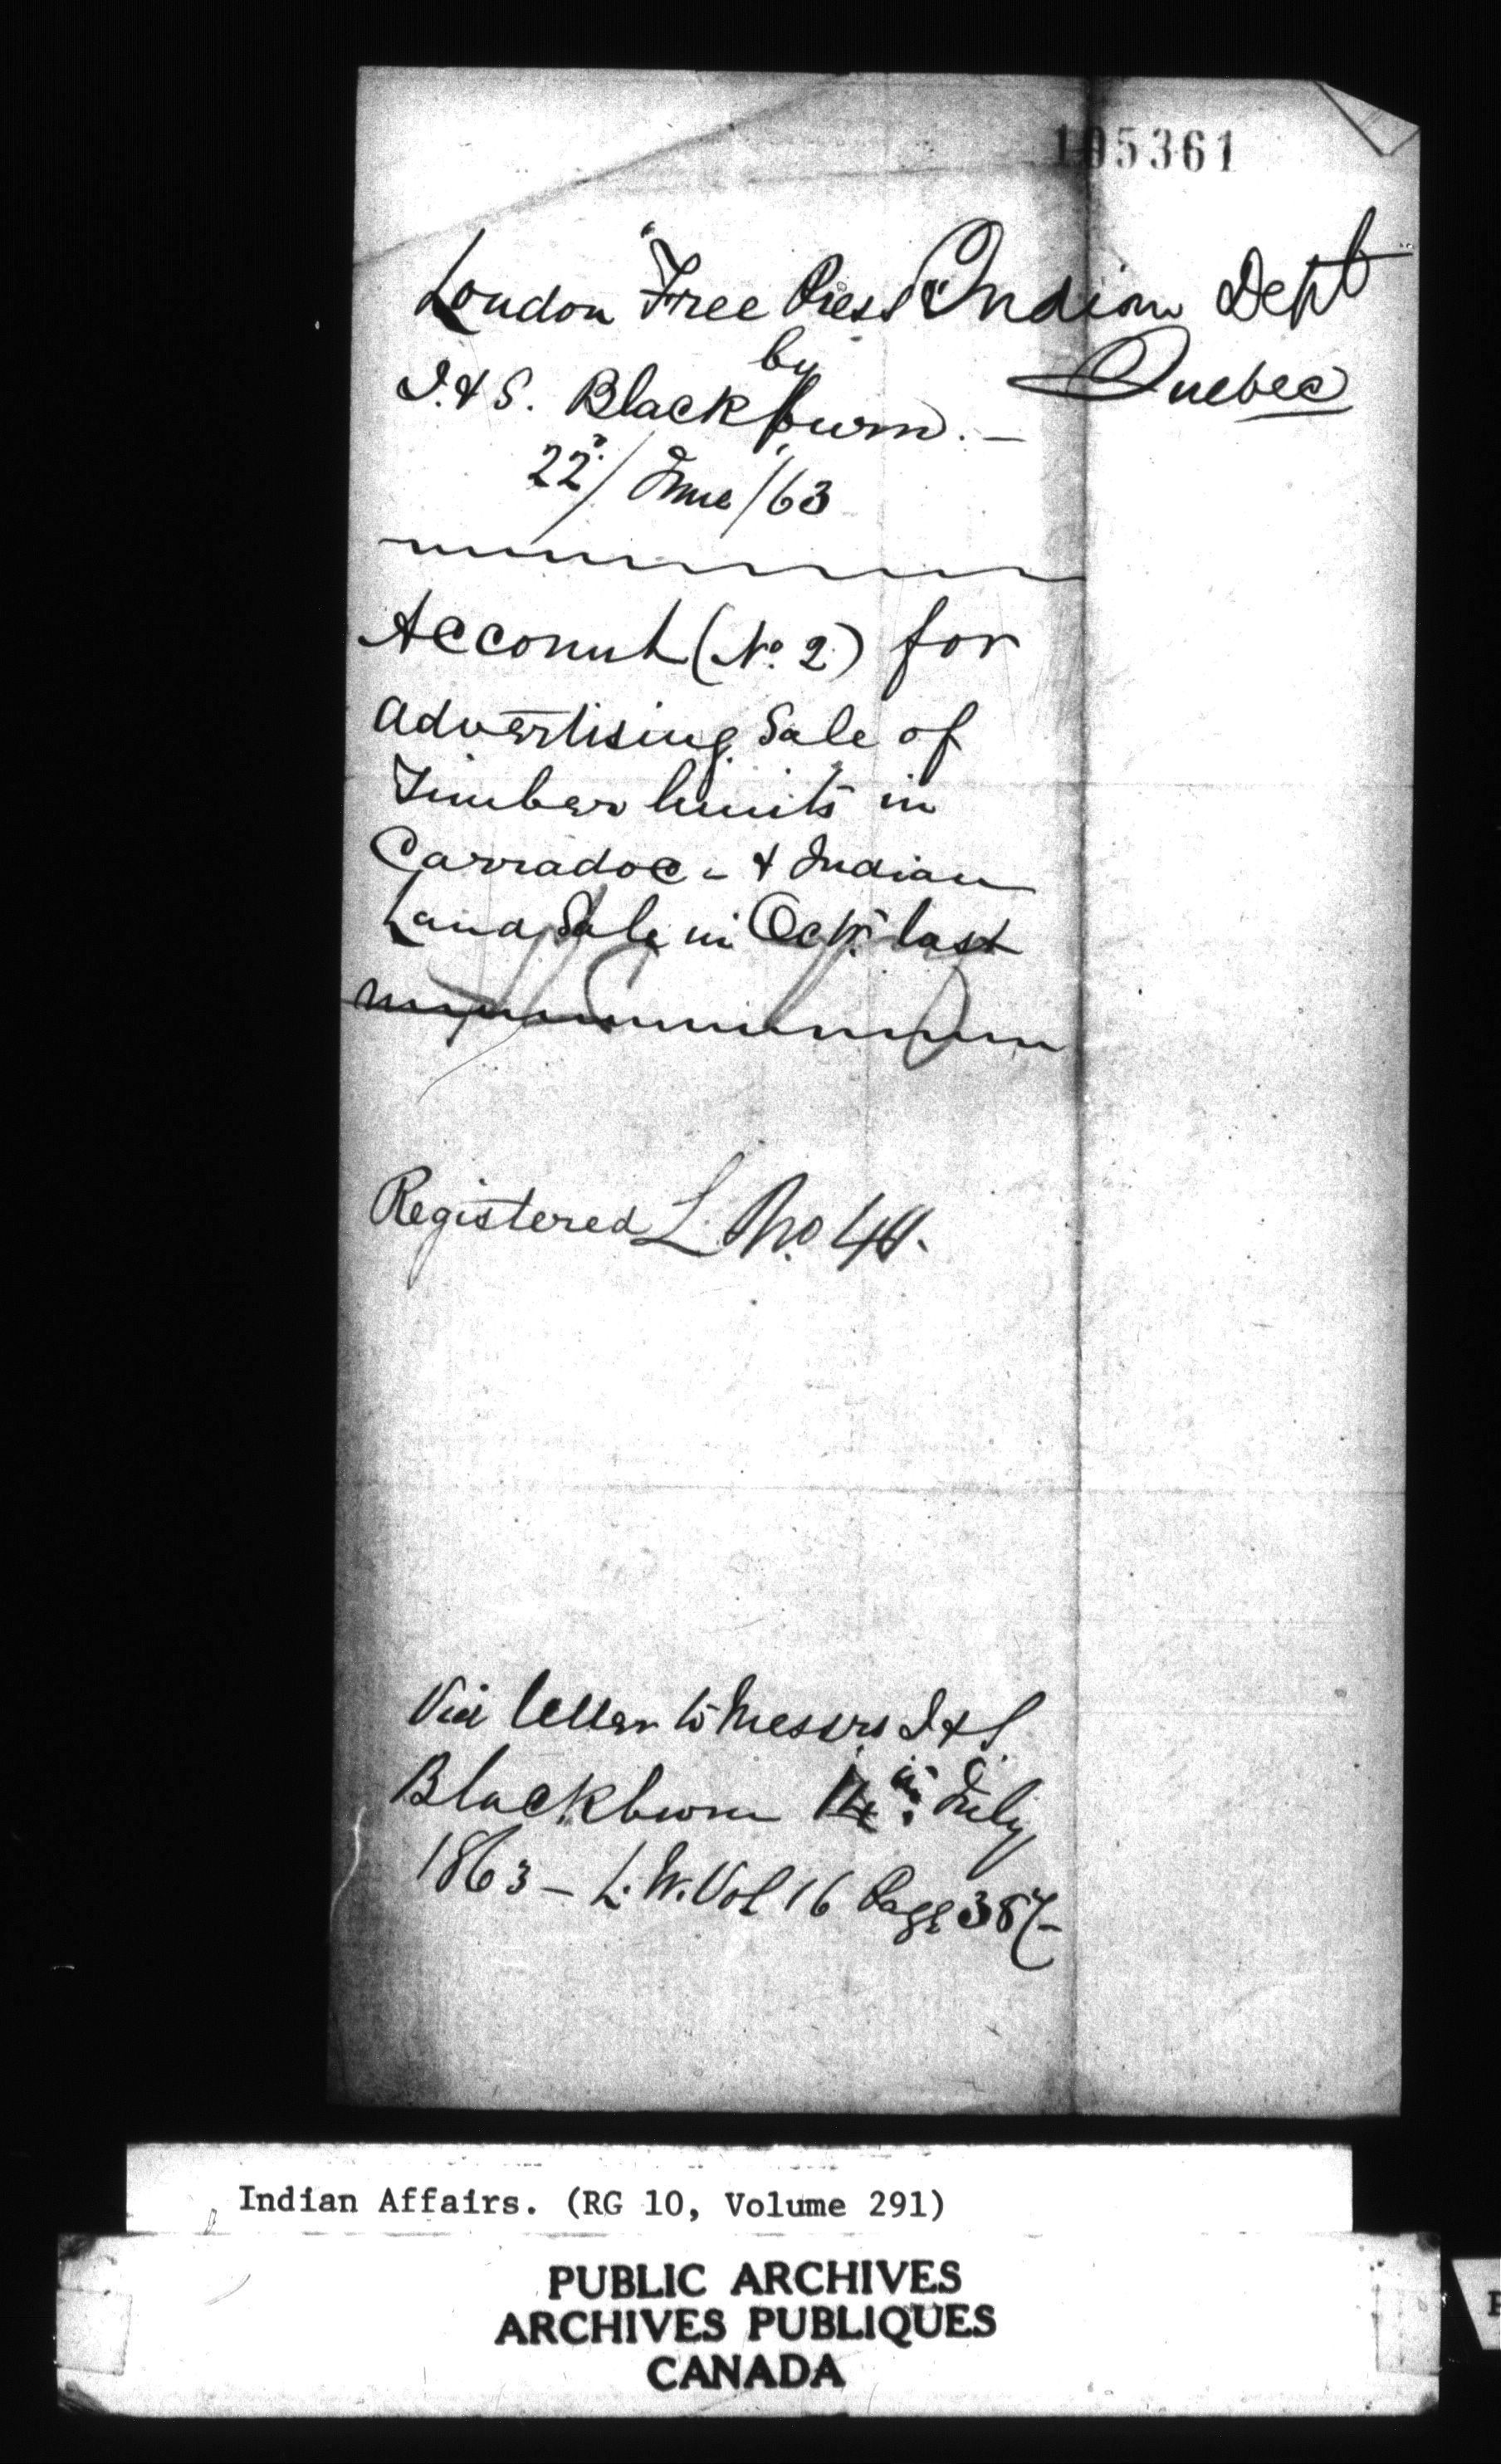 105361
London "Free Press" Indian Dept
by
Quebec
J. & S. Blackburn. —
22d/ June /63
Account (No. 2) for
advertising Sale of
Timber limits in
Carradoc - & Indian
Land Sale in Octr. last
Registered L. No. 44.
Vid letter to Messrs J & S
Blackburn 14th July
1863 — L. W. Vol 16 Page 387—
Indian Affairs. (RG 10, Volume 291)
PUBLIC ARCHIVES
ARCHIVES PUBLIQUES
CANADA